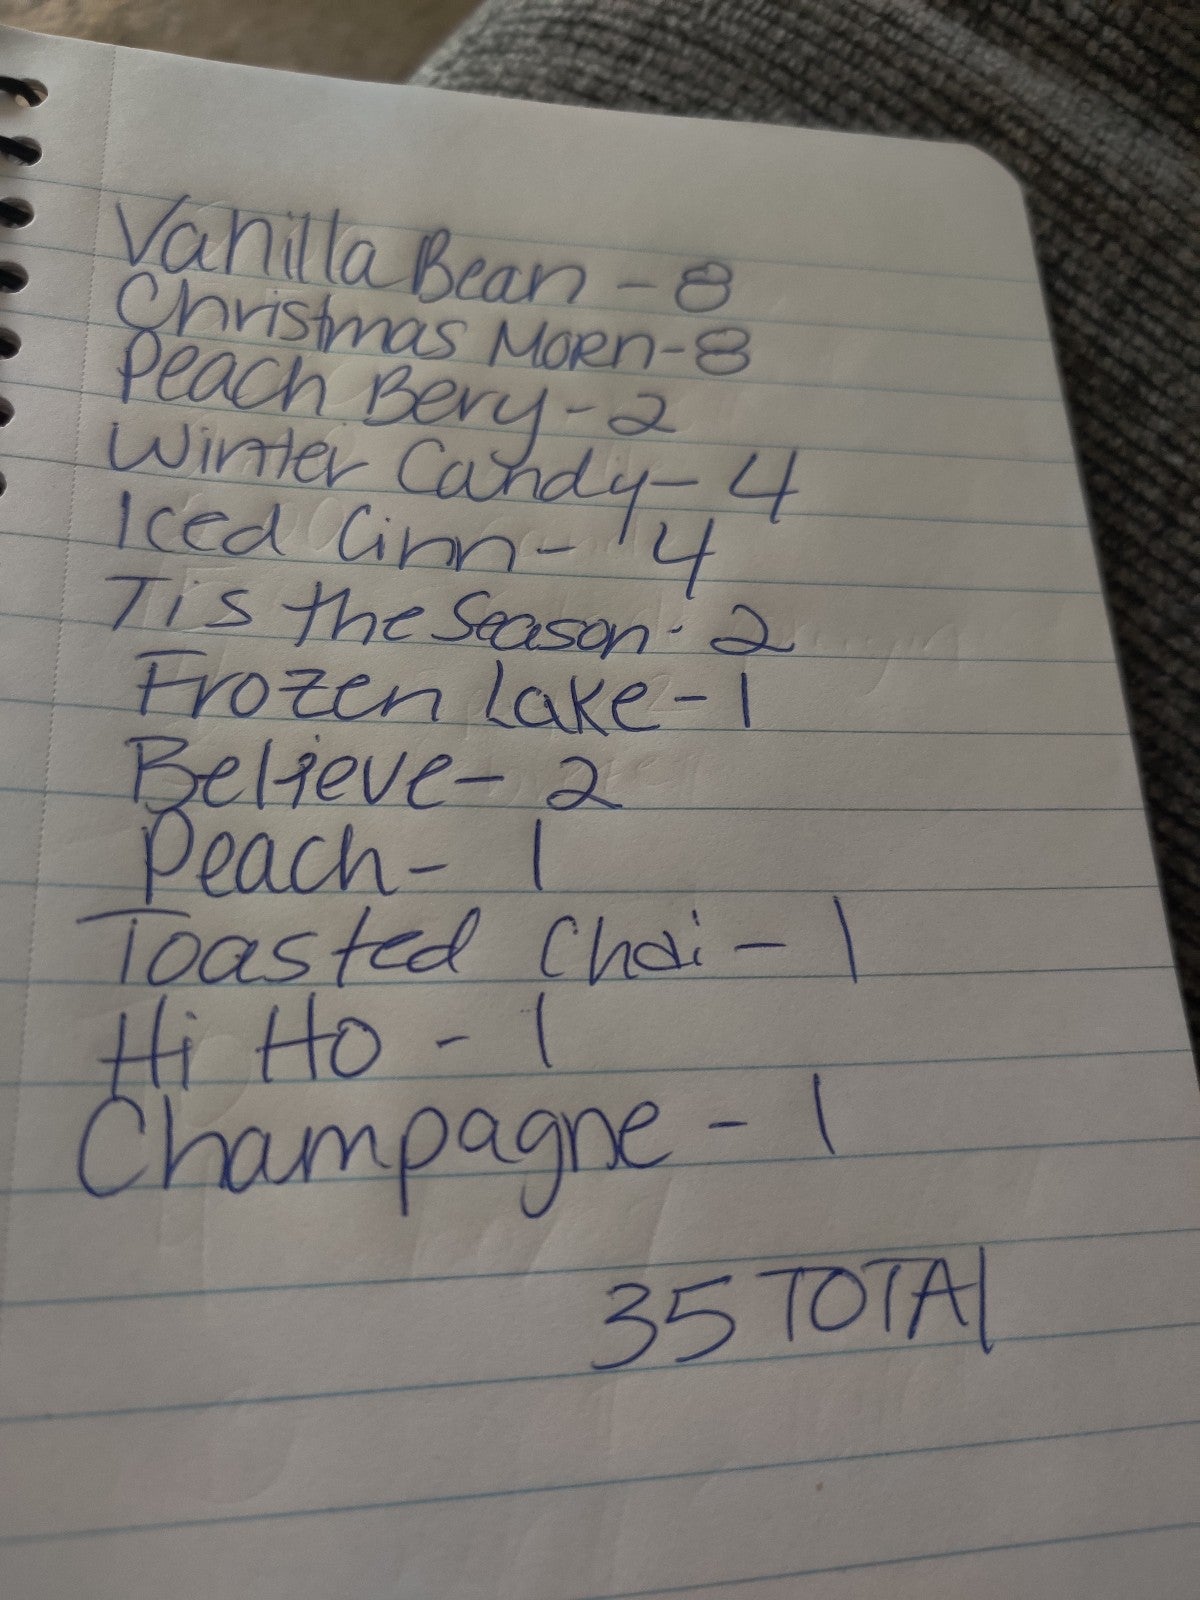 Vanilla Bean - 8
Christmas Morn - 8
Peach Bery - 2
Winter Candy - 4
Iced Cinn - 4
Tis the Season - 2
Frozen Lake - 1
Believe - 2
Peach - 1
Toasted Chai - 1
Hi Ho - 1
Champagne - 1
35 TOTAL